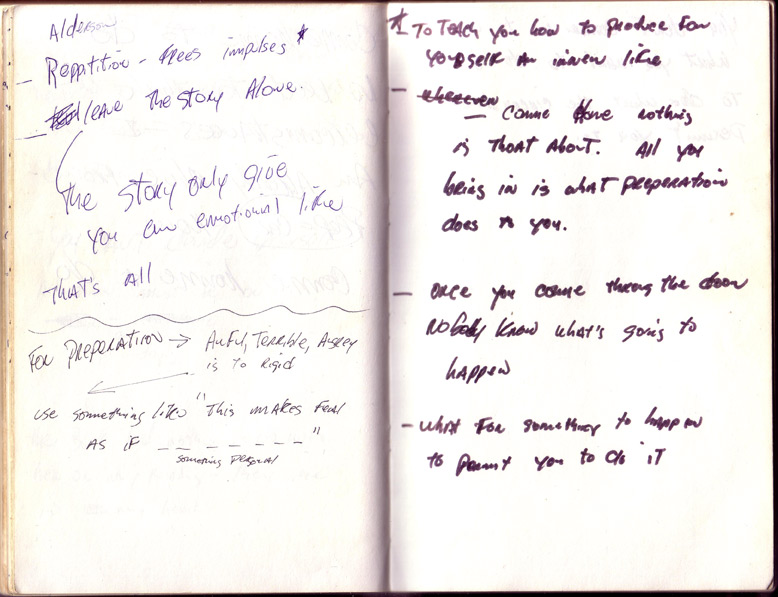 Alderson
– Reppitition – frees impulses *
– leave The Story Alone.
The Story only give
you an emotional like
That's All
For Preparation → Awful, Terrible, Angry
is to rigid
use something like "This makes feel
AS IF _ _ _ _ _ _ _ "
something personal
* To Teach you how to produce for
yourself An inner like
–
– Come nothing
is That About. All you
bring in is what preparation
does to you.
– Once you come throug the door
Nobody Know what's going to
happen
– what For something to happen
to permit you to do it